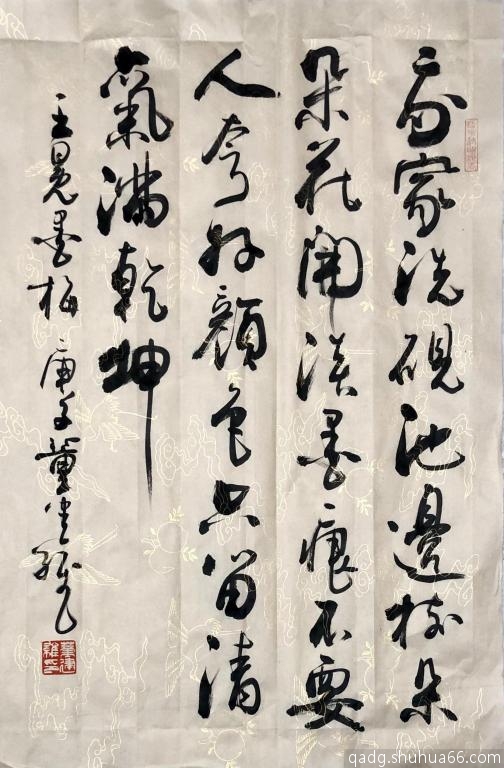 我家洗硯池邊樹朵
朵花開淡墨痕不要
人夸好顏色只留清
氣滿乾坤
王冕墨梅 庚子董
qadg.shuhua66.com